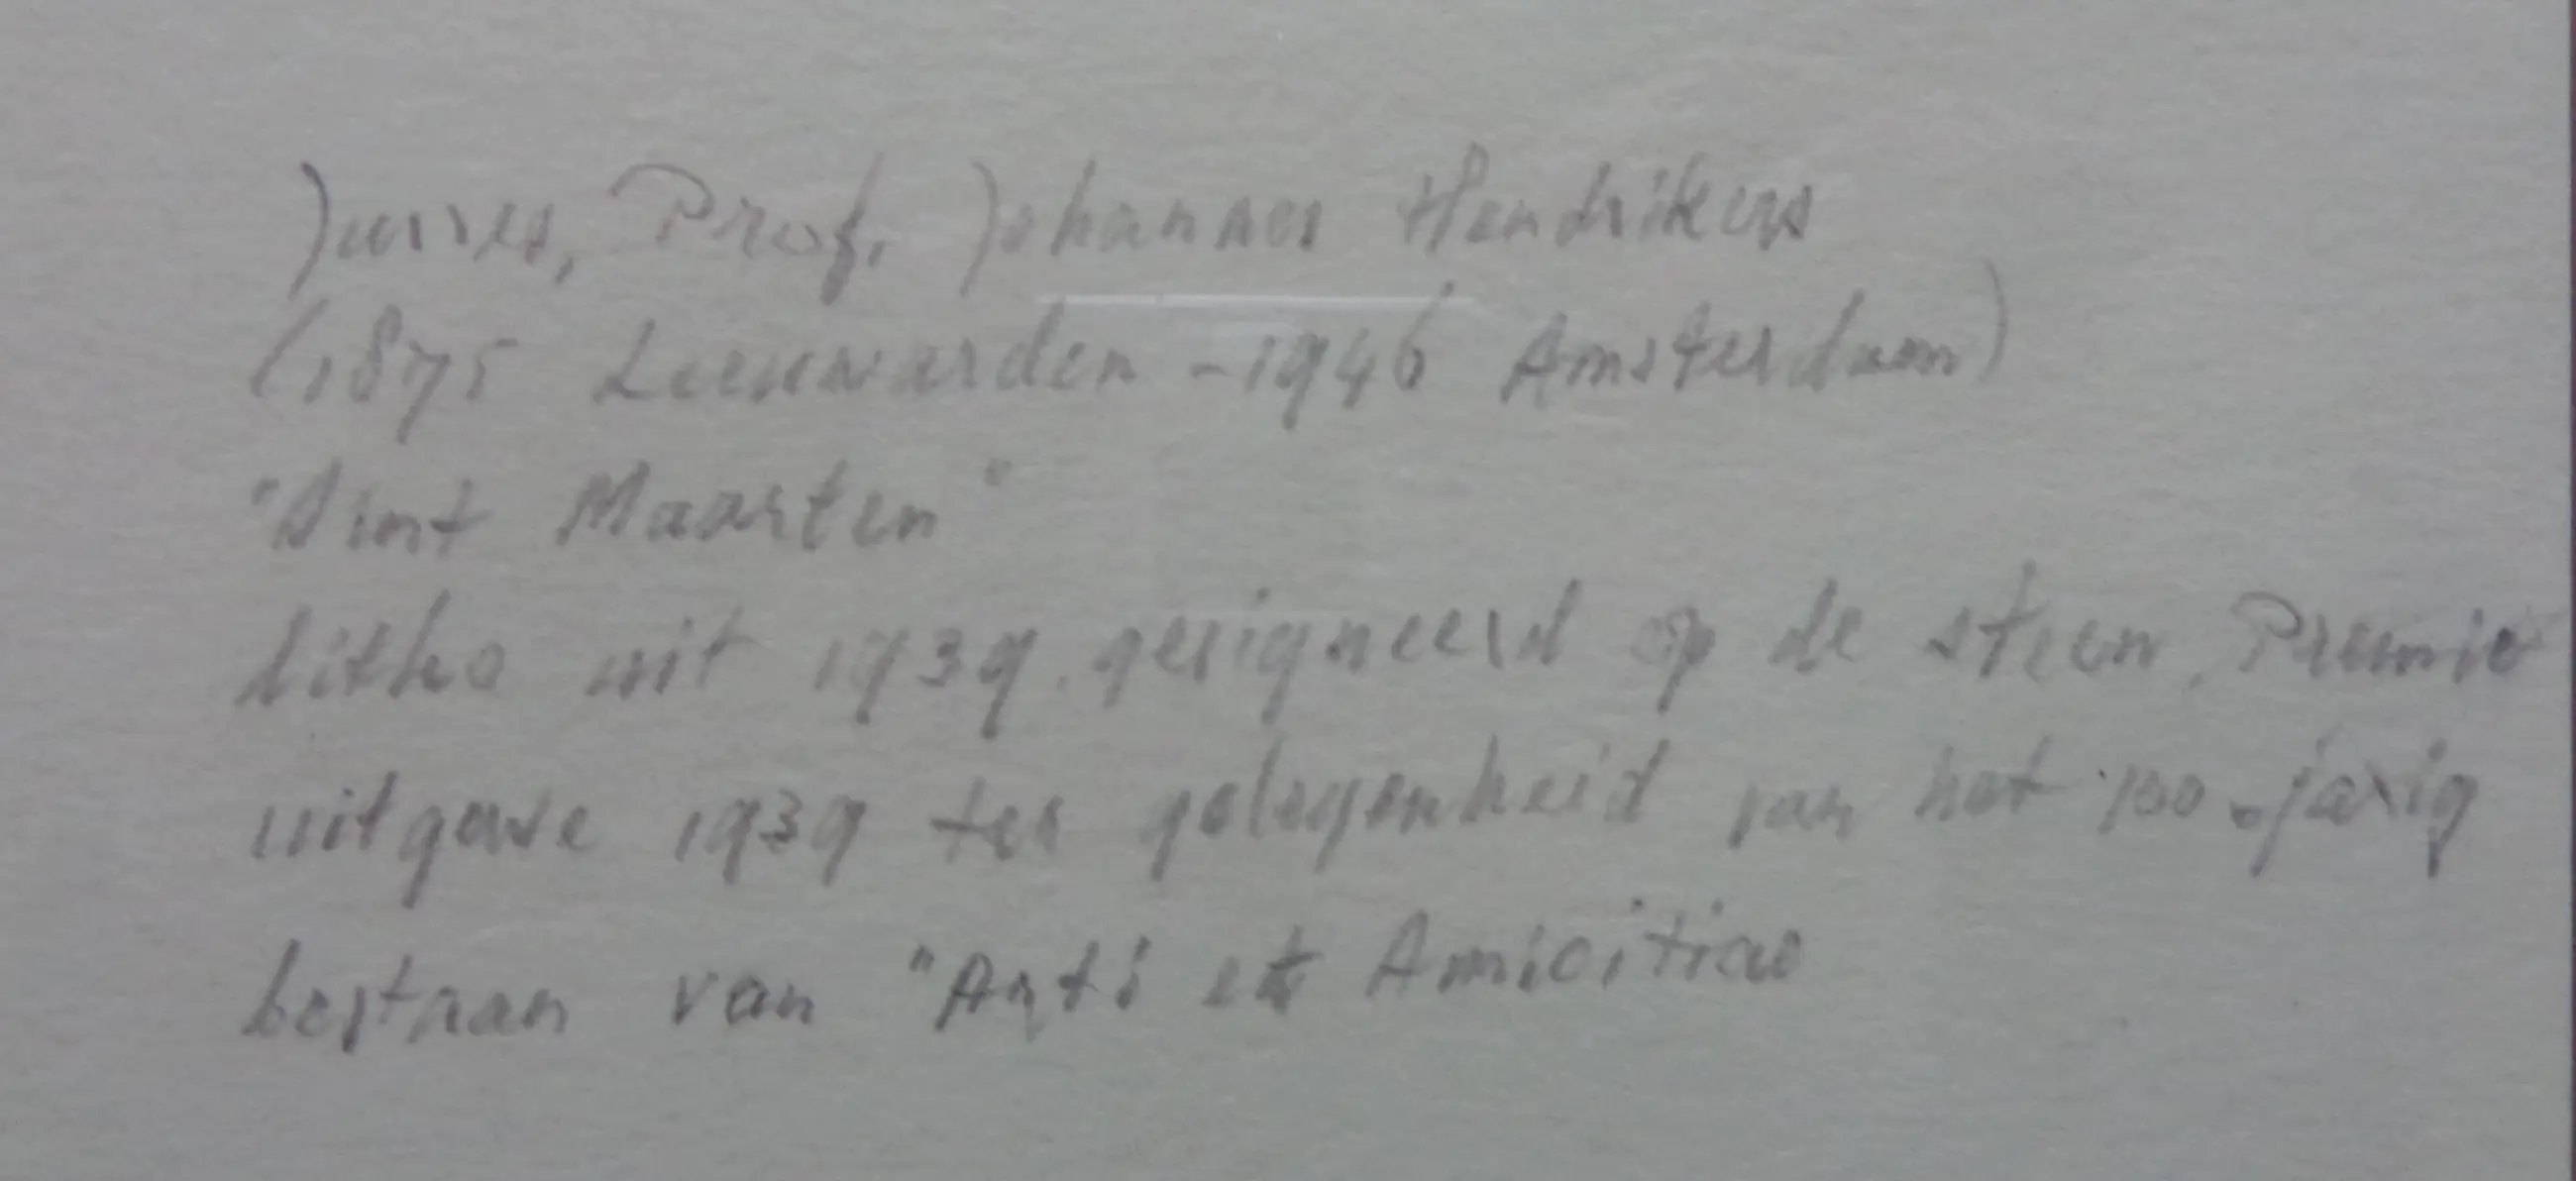 Jurres, Prof. Johannes Hendrikus
(1875 Leeuwarden - 1946 Amsterdam)
"Sint Maarten"
litho uit 1939. gesigneerd op de steen, Premie
uitgave 1939 ter gelegenheid van het 100-jarig
bestaan van "Arti et Amicitiae